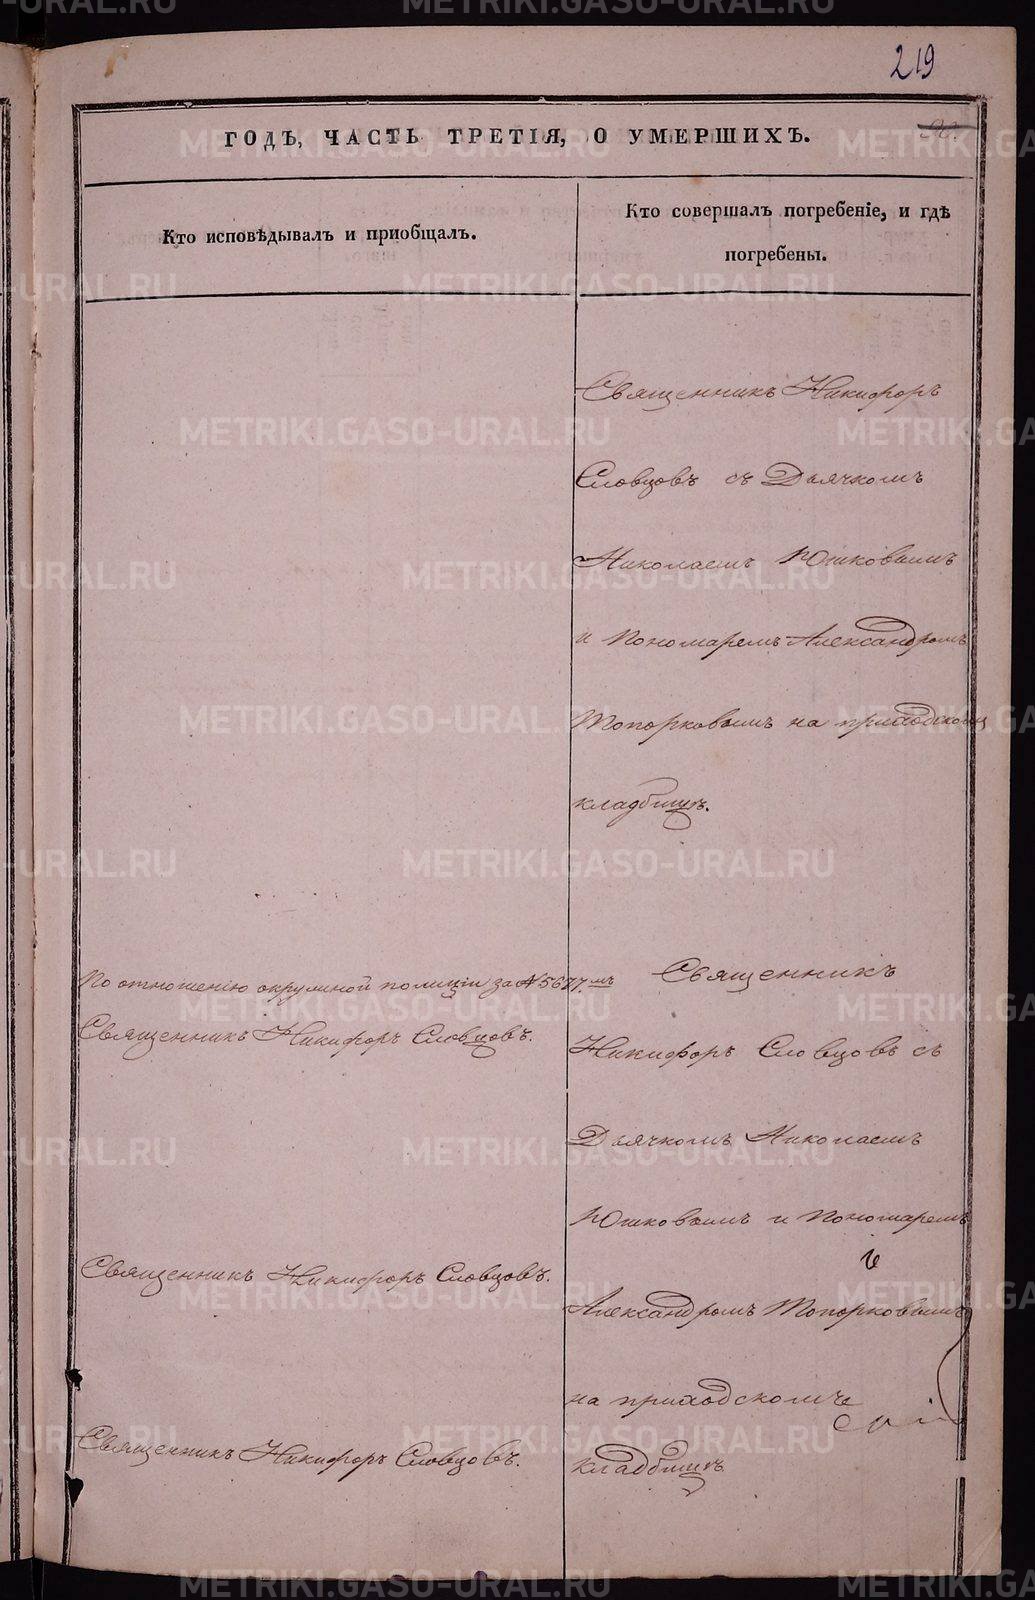 219
ГОДЪ, ЧАСТЬ ТРЕТІЯ, О УМЕРШИХЪ.
Кто исповѣдывалъ и пріобщалъ.
Кто совершалъ погребеніе, и гдѣ
погребены.
Священникъ Никифоръ
Словцовъ съ Дьячкомъ
Николаемъ Юшковымъ
и Пономаремъ Александромъ
Топорковымъ на приходскомъ
кладбищѣ.
По отношенію окружной полиціи за № 5677мъ
Священникъ Никифоръ Словцовъ.
Священникъ
Никифоръ Словцовъ съ
Дьячкомъ Николаемъ
Юшковымъ и Пономаремъ
Священникъ Никифоръ Словцовъ.
Александромъ Топорковымъ
на приходскомъ
Священникъ Никифоръ Словцовъ.
кладбищѣ
METRIKI.GASO-URAL.RU